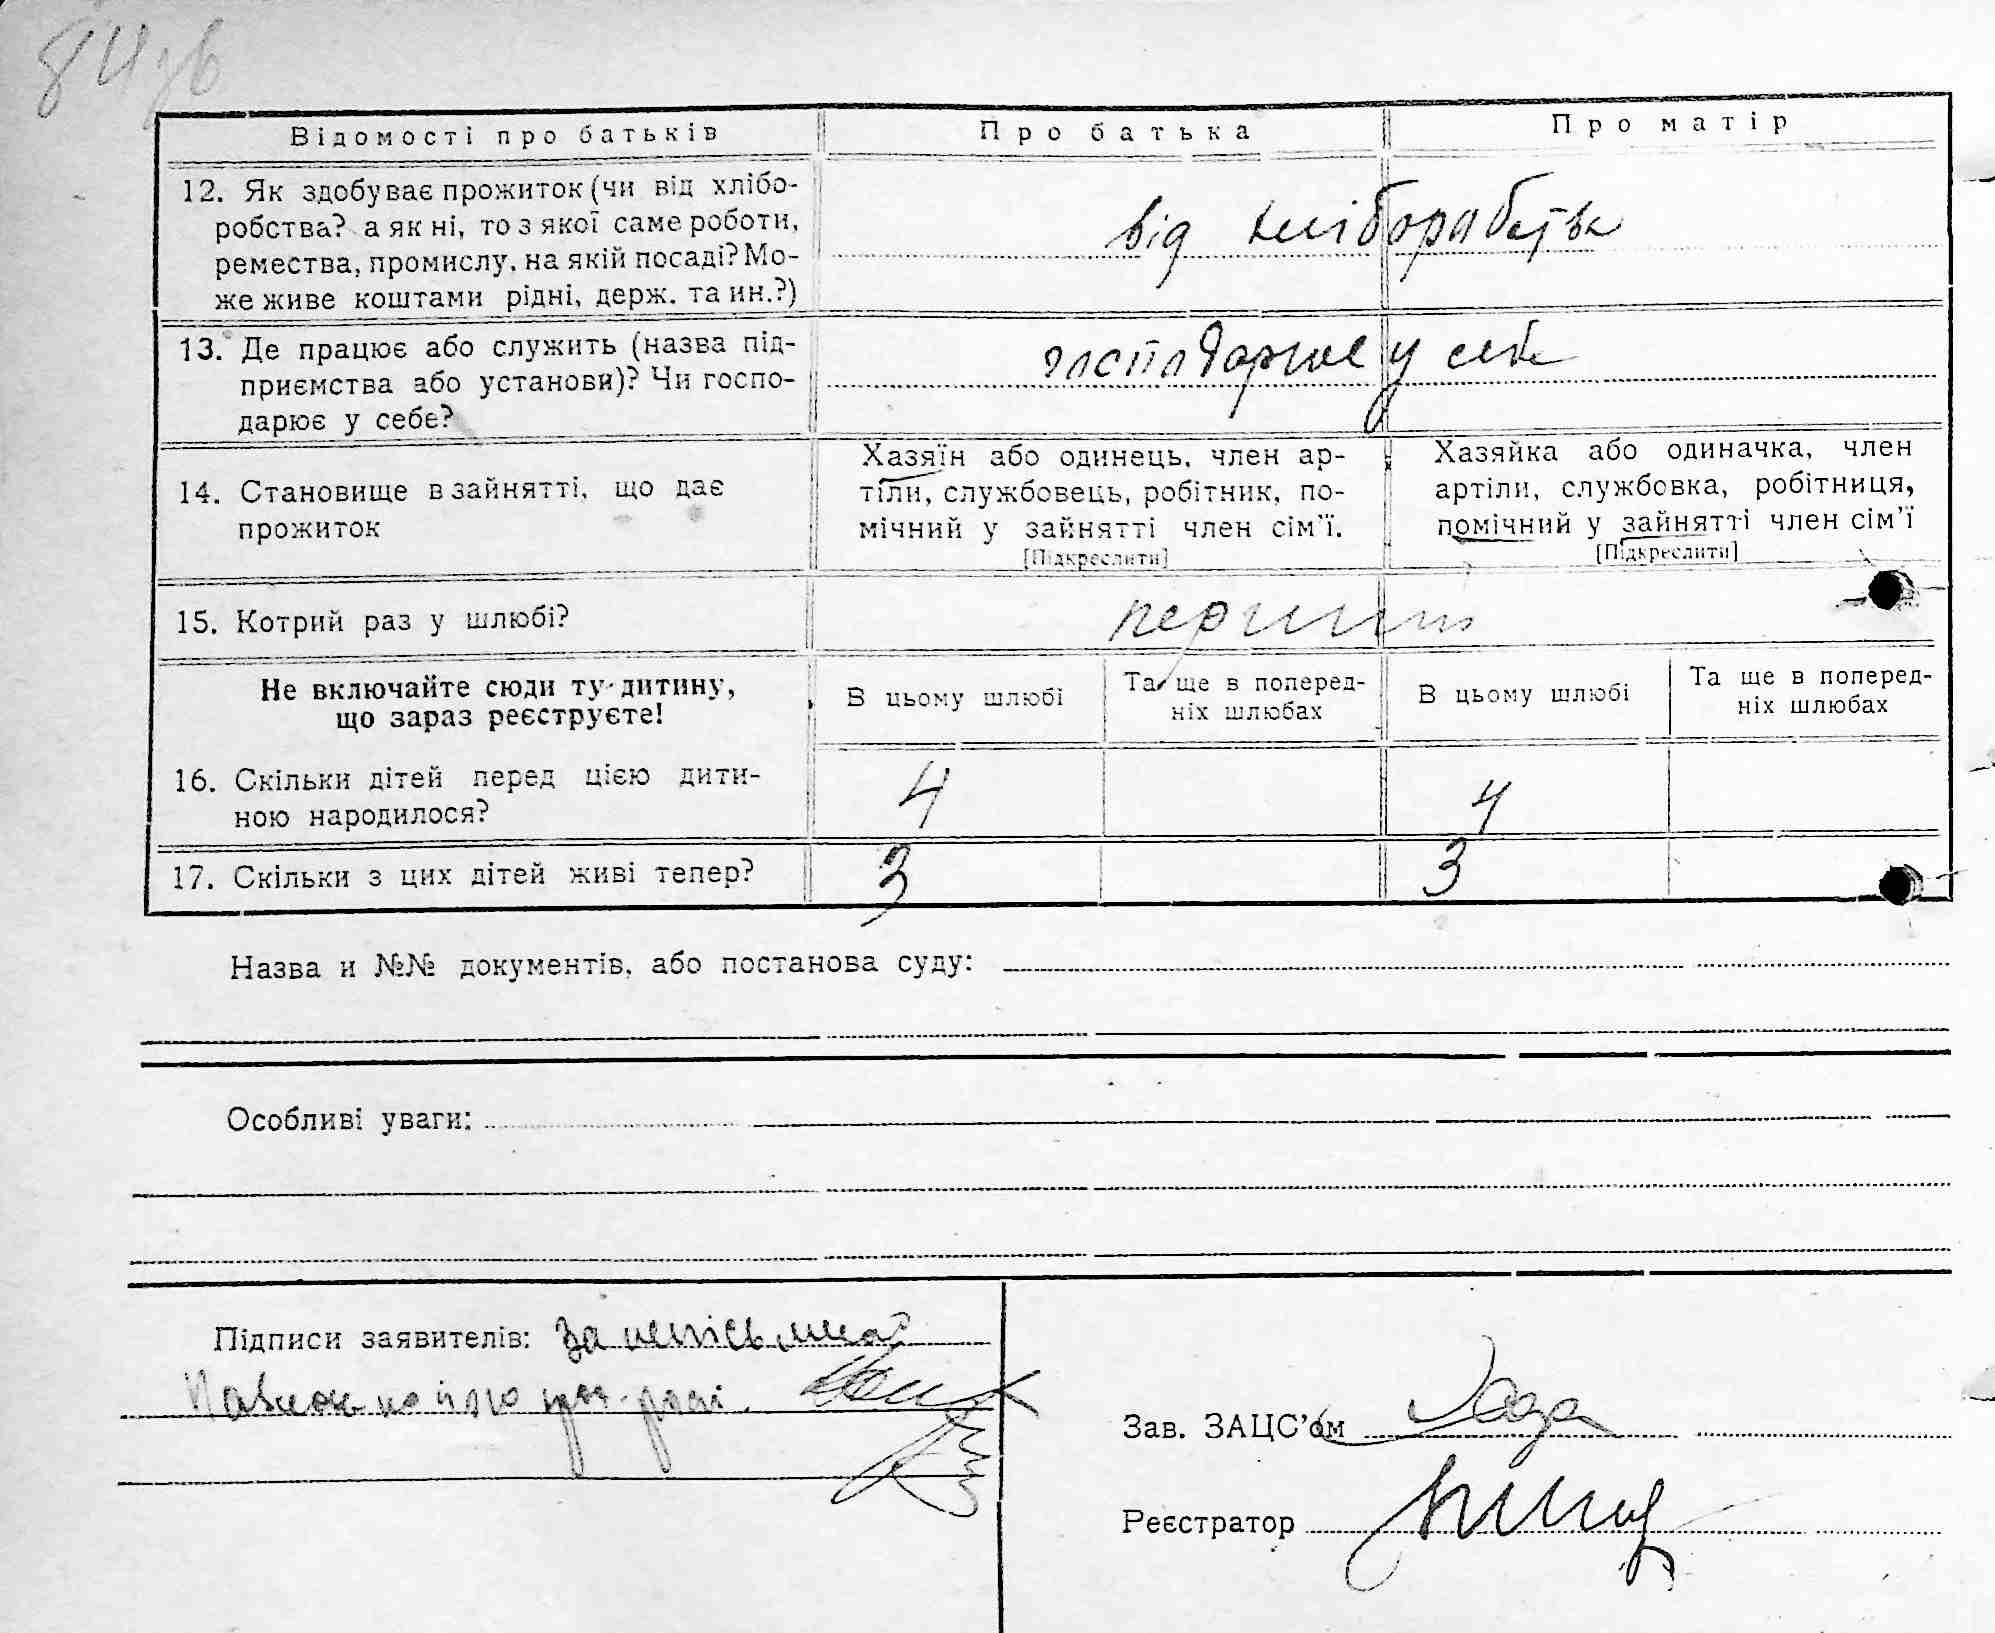 84зв
Відомості про батьків Про батька Про матір
12. Як здобуває прожиток (чи від хлібо-
робства? а як ні, то з якої саме роботи,
ремества, промислу, на якій посаді? Мо-
же живе коштами рідні, держ. та ин.?)
від хліборобства
13. Де працює або служить (назва під-
приємства або установи)? Чи госпо-
дарює у себе?
господарює у себе
14. Становище в зайнятті, що дає
прожиток
Хазяїн або одинець, член ар-
тіли, службовець, робітник, по-
мічний у зайнятті член сім'ї.
[Підкреслити]
Хазяйка або одиначка, член
артіли, службовка, робітниця,
помічний у зайнятті член сім'ї
[Підкреслити]
15. Котрий раз у шлюбі?
перший
Не включайте сюди ту дитину,
що зараз реєструєте!
В цьому шлюбі Та ще в поперед-
ніх шлюбах В цьому шлюбі Та ще в поперед-
ніх шлюбах
16. Скільки дітей перед цією дити-
ною народилося?
4 4
17. Скільки з цих дітей живі тепер? 3 3
Назва и №№ документів, або постанова суду:
Особливі уваги:
Підписи заявителів: за
Зав. ЗАЦС'ом
Реєстратор